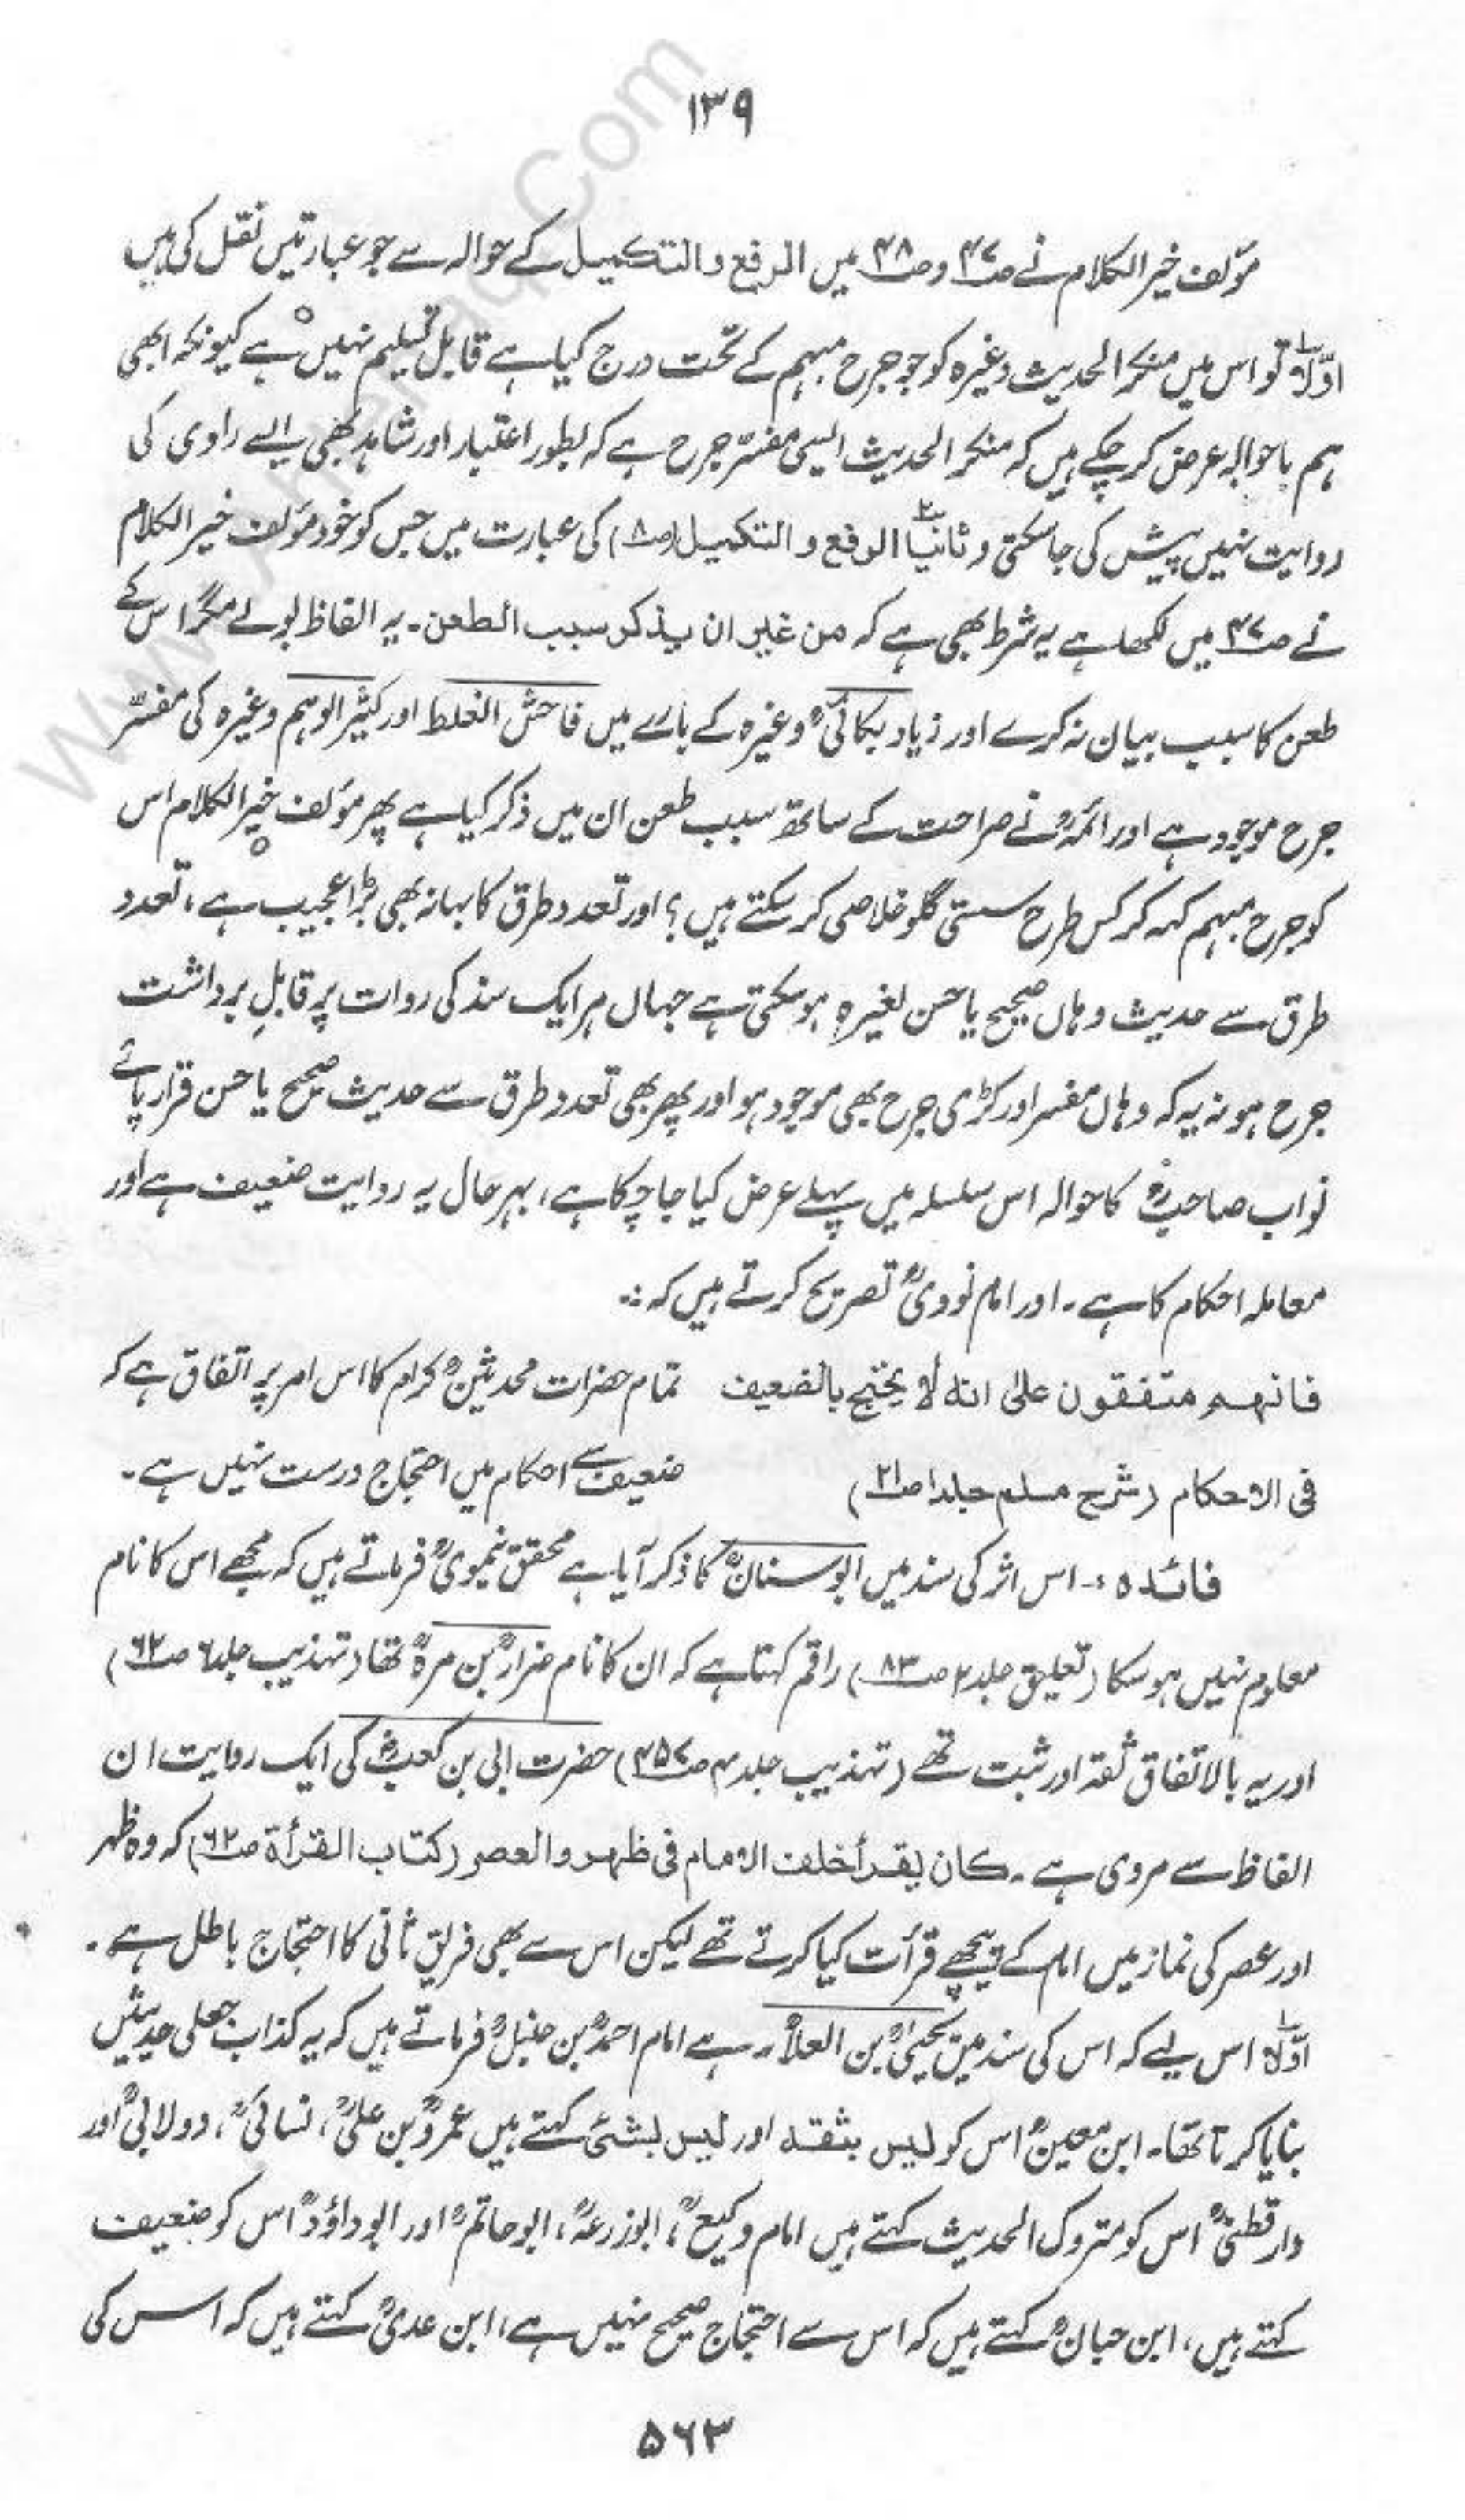 ۱۳۹
مؤلف خیر الکلام نے ص۴۷ و ص۴۸ میں الرفع والتکمیل کے حوالہ سے جو عبارتیں نقل کی ہیں
اوّلاً تو اس میں منکر الحدیث وغیرہ کو جو جرح مبہم کے تحت درج کیا ہے قابل تسلیم نہیں ہے کیونکہ ابھی
ہم باحوالہ عرض کر چکے ہیں کہ منکر الحدیث ایسی مفسّر جرح ہے کہ بطور اعتبار اور شاہد بھی ایسے راوی کی
روایت نہیں پیش کی جا سکتی و ثانیاً الرفع و التکمیل (ص۸) کی عبارت میں جس کو خود مؤلف خیر الکلام
نے ص۴۷ میں لکھا ہے یہ شرط بھی ہے کہ من غیر ان یذکر سبب الطعن۔ یہ الفاظ بولے مگر اس کے
طعن کا سبب بیان نہ کرے اور زیاد بکائیؒ وغیرہ کے بارے میں فاحش الغلط اور کثیر الوہم وغیرہ کی مفسّر
جرح موجود ہے اور ائمہؒ نے صراحت کے ساتھ سبب طعن ان میں ذکر کیا ہے پھر مؤلف خیر الکلام اس
کو جرح مبہم کہہ کر کس طرح سستی گلو خلاصی کر سکتے ہیں؟ اور تعدد طرق کا بہانہ بھی بڑا عجیب ہے، تعدد
طرق سے حدیث وہاں صحیح یا حسن لغیرہٖ ہو سکتی ہے جہاں ہر ایک سند کی روات پر قابلِ برداشت
جرح ہو نہ یہ کہ وہاں مفسر اور کڑی جرح بھی موجود ہو اور پھر بھی تعدد طرق سے حدیث صحیح یا حسن قرار پائے
نواب صاحبؒ کا حوالہ اس سلسلہ میں پہلے عرض کیا جا چکا ہے، بہر حال یہ روایت ضعیف ہے اور
معاملہ احکام کا ہے۔ اور امام نوویؒ تصریح کرتے ہیں کہ :۔
فانہم متفقون علیٰ انہ لا یحتج بالضعیف تمام حضرات محدثینؒ کرام کا اس امر پر اتفاق ہے کہ
فی الاحکام (شرح مسلم جلد۱ ص۲۱) ضعیف سے احکام میں احتجاج درست نہیں ہے۔
فائدہ :۔ اس اثر کی سند میں ابوسنانؒ کا ذکر آیا ہے محقق نیمویؒ فرماتے ہیں کہ مجھے اس کا نام
معلوم نہیں ہو سکا (تعلیق جلد۲ ص۸۳) راقم کہتا ہے کہ ان کا نام ضرارؒ بن مرہؒ تھا (تہذیب جلد۶ ص۶۲)
اور یہ بالاتفاق ثقہ اور ثبت تھے (تہذیب جلد۴ ص۴۵۷) حضرت ابی بن کعبؓ کی ایک روایت ان
الفاظ سے مروی ہے۔ کان یقرأ خلف الامام فی ظہر والعصر (کتاب القرأۃ ص۶۲) کہ وہ ظہر
اور عصر کی نماز میں امام کے پیچھے قرأت کیا کرتے تھے لیکن اس سے بھی فریق ثانی کا احتجاج باطل ہے۔
اوّلاً اس لیے کہ اس کی سند میں یحییٰؒ بن العلاءؒ۔ ہے امام احمدؒ بن حنبلؒ فرماتے ہیں کہ یہ کذاب جعلی حدیثیں
بنایا کرتا تھا۔ ابن معینؒ اس کو لیس بثقہ اور لیس بشئ کہتے ہیں عمروؒ بن علیؒ، نسائیؒ، دولابیؒ اور
دارقطنیؒ اس کو متروک الحدیث کہتے ہیں امام وکیعؒ، ابوزرعہؒ، ابوحاتمؒ اور ابوداؤدؒ اس کو ضعیف
کہتے ہیں، ابن حبانؒ کہتے ہیں کہ اس سے احتجاج صحیح نہیں ہے، ابن عدیؒ کہتے ہیں کہ اس کی
۵۶۳